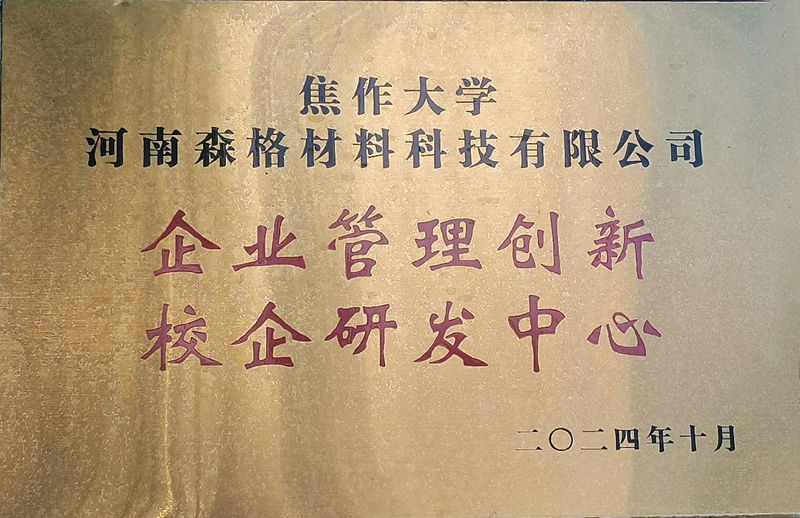 焦作大学
河南森格材料科技有限公司
企业管理创新
校企研发中心
二〇二四年十月